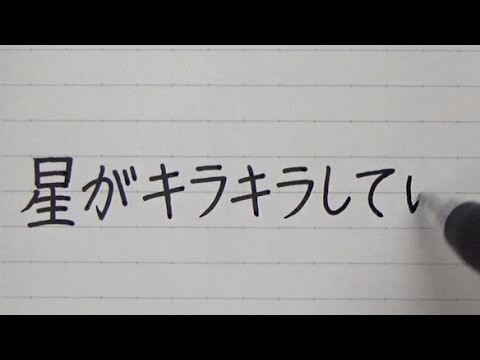 星がキラキラしてい